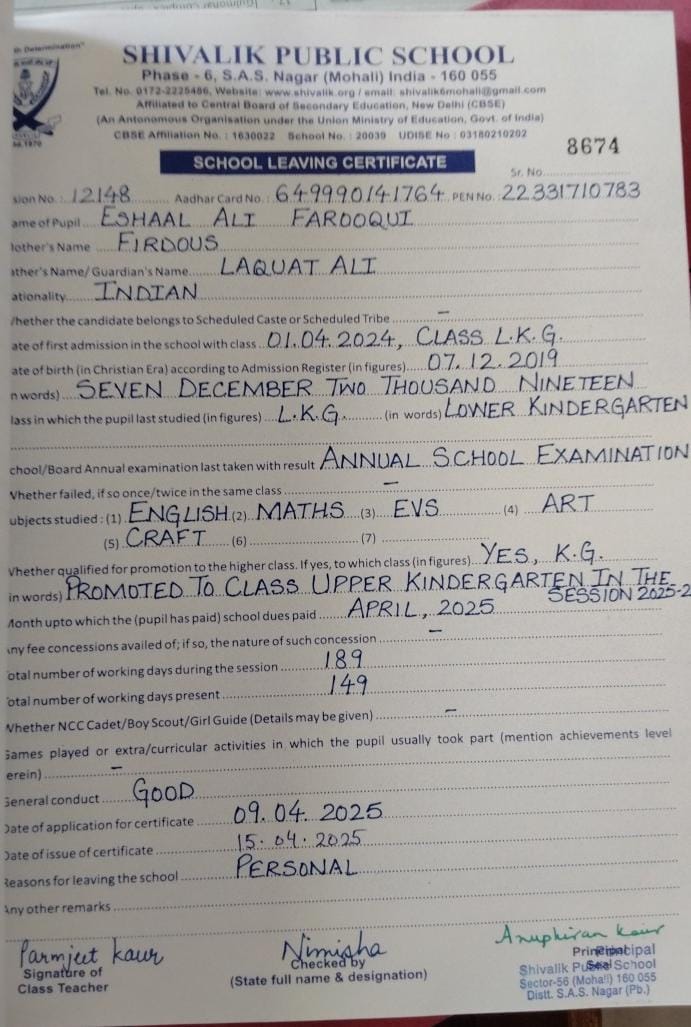 th Determination"
SHIVALIK PUBLIC SCHOOL
Phase - 6, S.A.S. Nagar (Mohali) India - 160 055
Tel. No. 0172-2225486, Website: www.shivalik.org / email: shivalik6mohali@gmail.com
Affiliated to Central Board of Secondary Education, New Delhi (CBSE)
(An Autonomous Organisation under the Union Ministry of Education, Govt. of India)
CBSE Affiliation No. : 1630022 School No. : 20039 UDISE No : 03180210202
8674
SCHOOL LEAVING CERTIFICATE
Sr. No.
sion No. : 12148 Aadhar Card No. : 649990141764 PEN No. : 22331710783
ame of Pupil ESHAAL ALI FAROOQUI
lother's Name FIRDOUS
ather's Name/ Guardian's Name LAQUAT ALI
ationality INDIAN
Whether the candidate belongs to Scheduled Caste or Scheduled Tribe –
ate of first admission in the school with class 01.04.2024, CLASS L.K.G.
ate of birth (in Christian Era) according to Admission Register (in figures) 07.12.2019
n words) SEVEN DECEMBER TWO THOUSAND NINETEEN
lass in which the pupil last studied (in figures) L.K.G. (in words) LOWER KINDERGARTEN
chool/Board Annual examination last taken with result ANNUAL SCHOOL EXAMINATION
Whether failed, if so once/twice in the same class –
ubjects studied : (1) ENGLISH (2) MATHS (3) EVS (4) ART
(5) CRAFT (6) (7)
Whether qualified for promotion to the higher class. If yes, to which class (in figures) YES, K.G.
in words) PROMOTED TO CLASS UPPER KINDERGARTEN IN THE
SESSION 2025-2
Month upto which the (pupil has paid) school dues paid APRIL, 2025
Any fee concessions availed of; if so, the nature of such concession –
otal number of working days during the session 189
otal number of working days present 149
Whether NCC Cadet/Boy Scout/Girl Guide (Details may be given) –
Games played or extra/curricular activities in which the pupil usually took part (mention achievements level
erein) –
General conduct GOOD
Date of application for certificate 09.04.2025
Date of issue of certificate 15.04.2025
Reasons for leaving the school PERSONAL
Any other remarks
Parmjeet Kaur
Signature of
Class Teacher
Nimisha
Checked by
(State full name & designation)
Anupkiran Kaur
Principal
Seal
Principal
Shivalik Public School
Sector-56 (Mohali) 160 055
Distt. S.A.S. Nagar (Pb.)